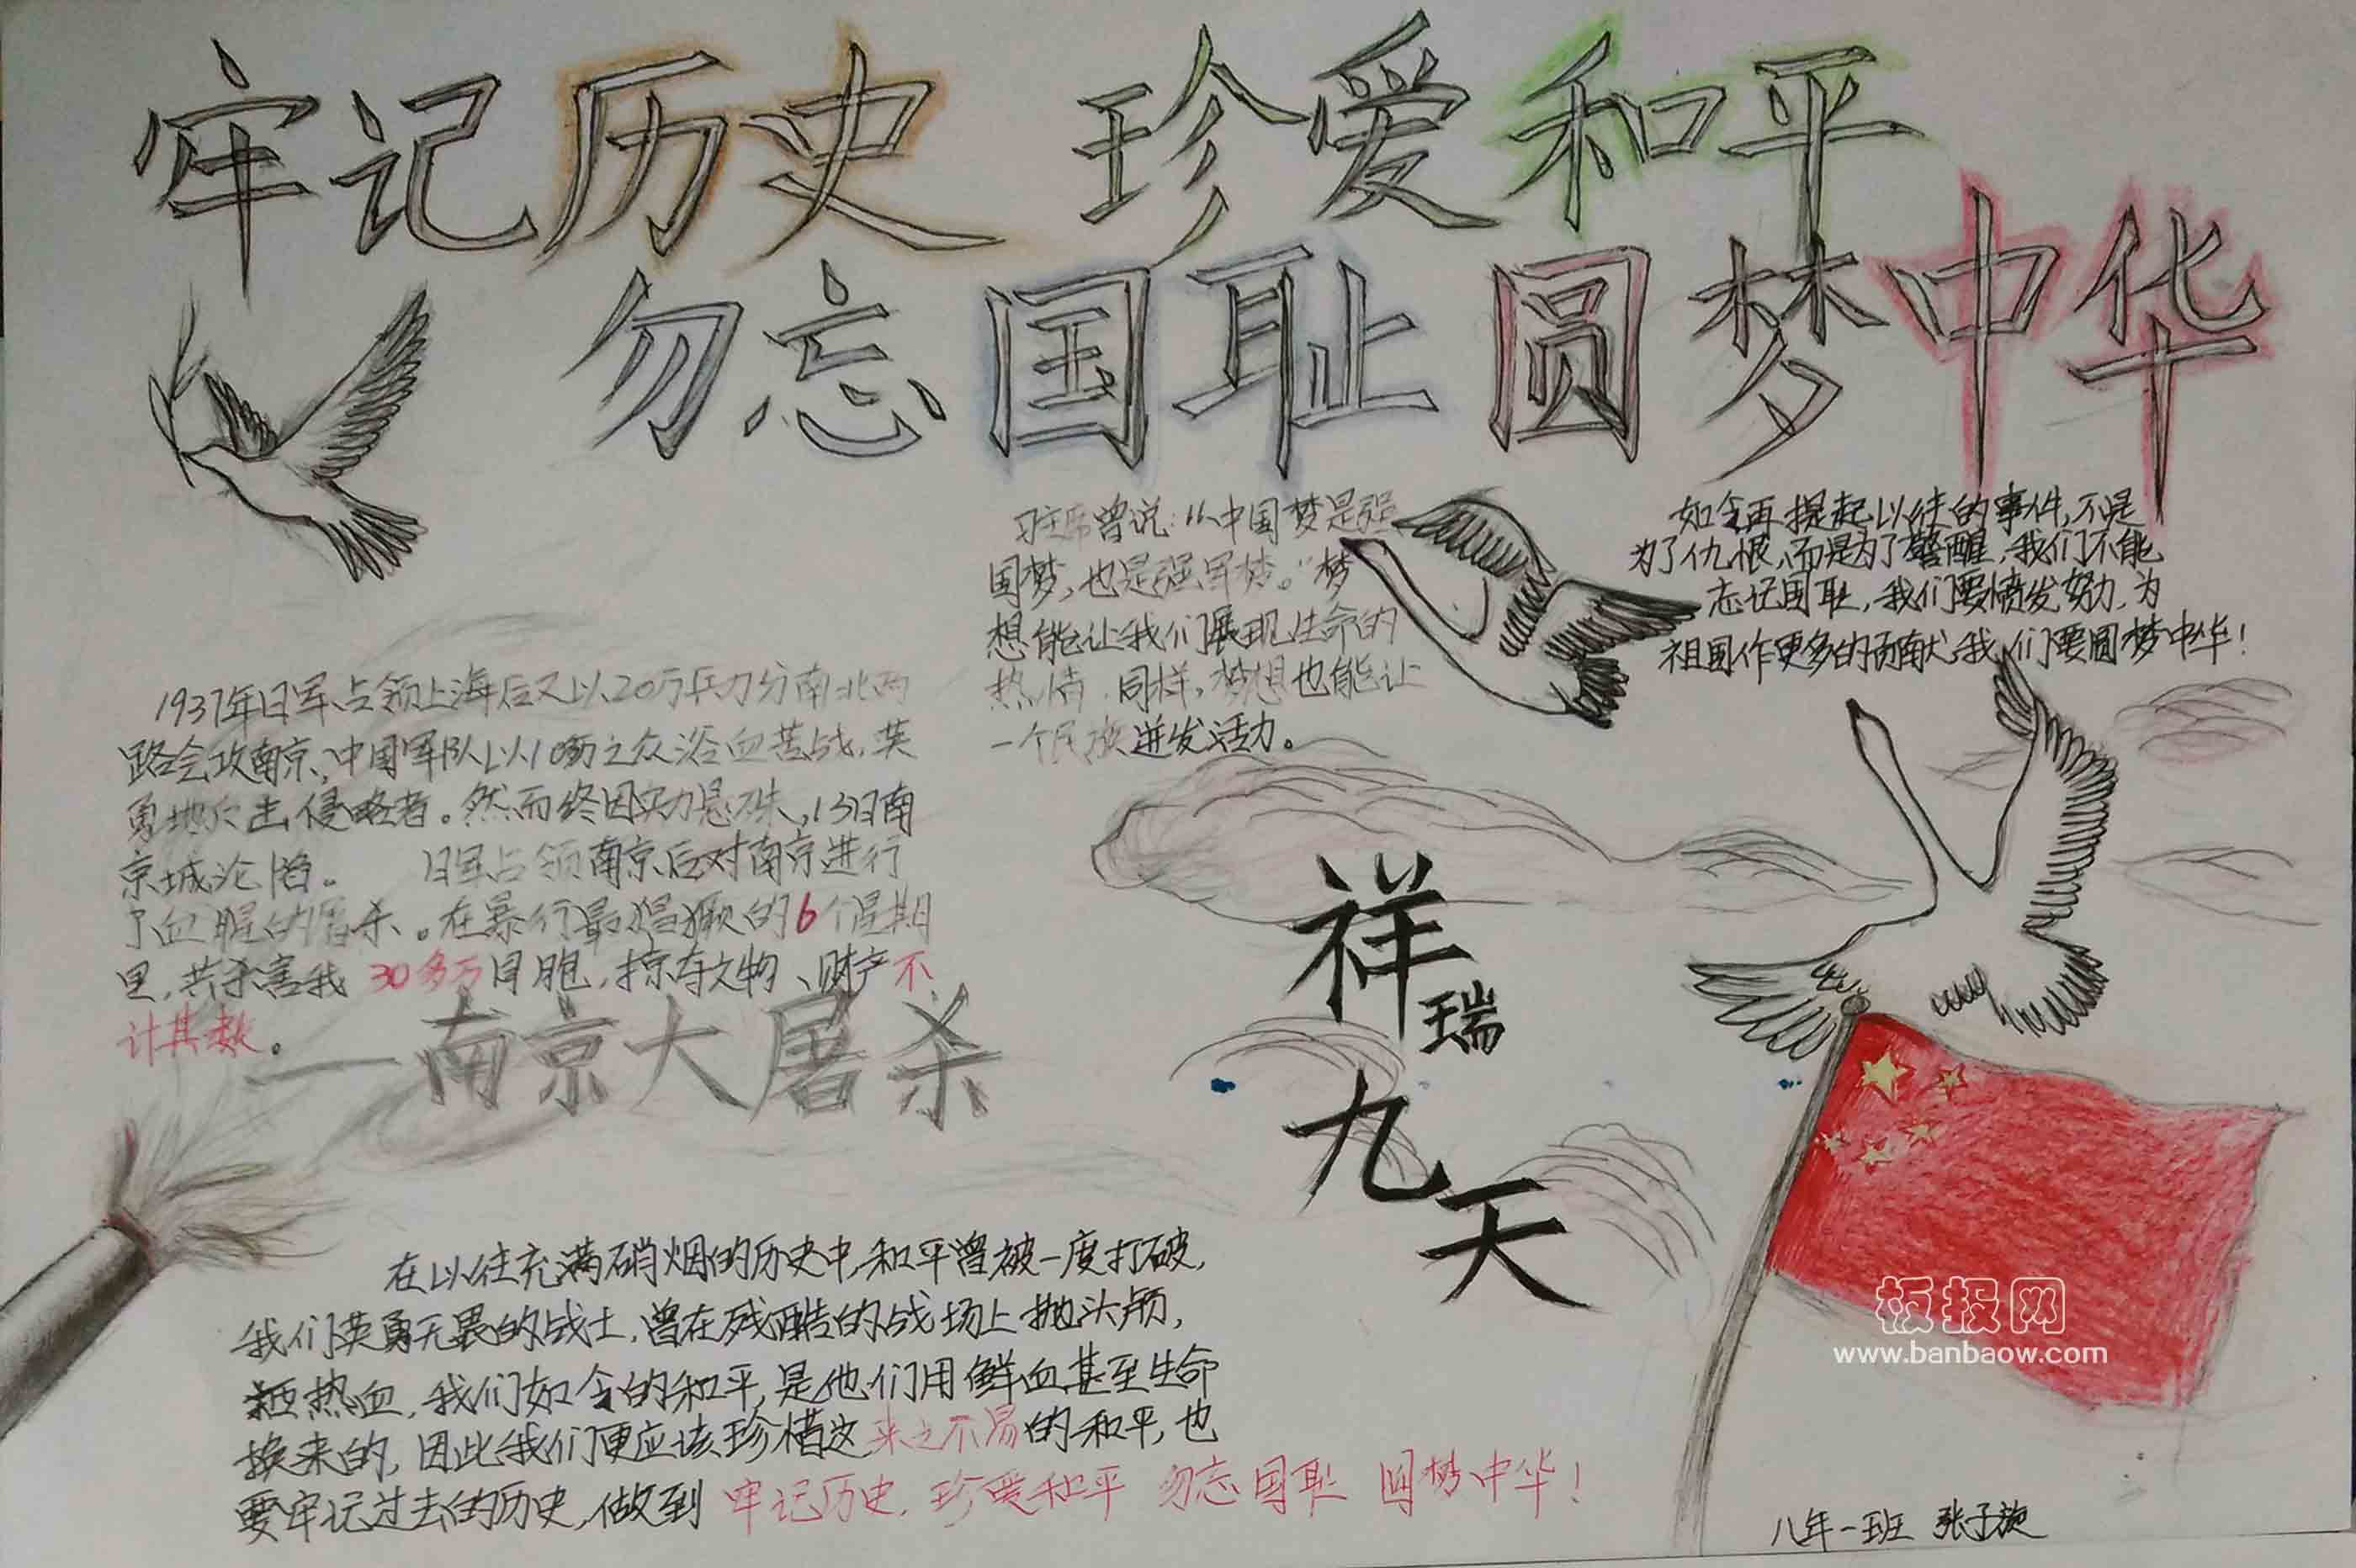 牢记历史 珍爱和平
勿忘国耻 圆梦中华
习主席曾说：“中国梦是强
国梦，也是强军梦。”梦
想能让我们展现生命的
热情．同样，梦想也能让
一个民族迸发活力。
如今再提起以往的事件，不是
为了仇恨，而是为了警醒，我们不能
忘记国耻，我们要愤发努力，为
祖国作更多的贡献，我们要圆梦中华！
1937年日军占领上海后又以20万兵力分南北两
路会攻南京，中国军队以10多万之众浴血苦战，英
勇地反击侵略者。然而终因实力悬殊，13日南
京城沦陷。 日军占领南京后对南京进行
了血腥的屠杀。在暴行最猖獗的6个星期
里，共杀害我30多万同胞，掠夺文物、财产不
计其数。
—南京大屠杀
祥
瑞
九
天
在以往充满硝烟的历史中，和平曾被一度打破，
我们英勇无畏的战士，曾在残酷的战场上抛头颅，
洒热血，我们如今的和平，是他们用鲜血甚至生命
换来的，因此我们更应该珍惜这来之不易的和平，也
要牢记过去的历史，做到 牢记历史，珍爱和平 勿忘国耻 圆梦中华！
八年一班 张子旋
板报网
www.banbaow.com